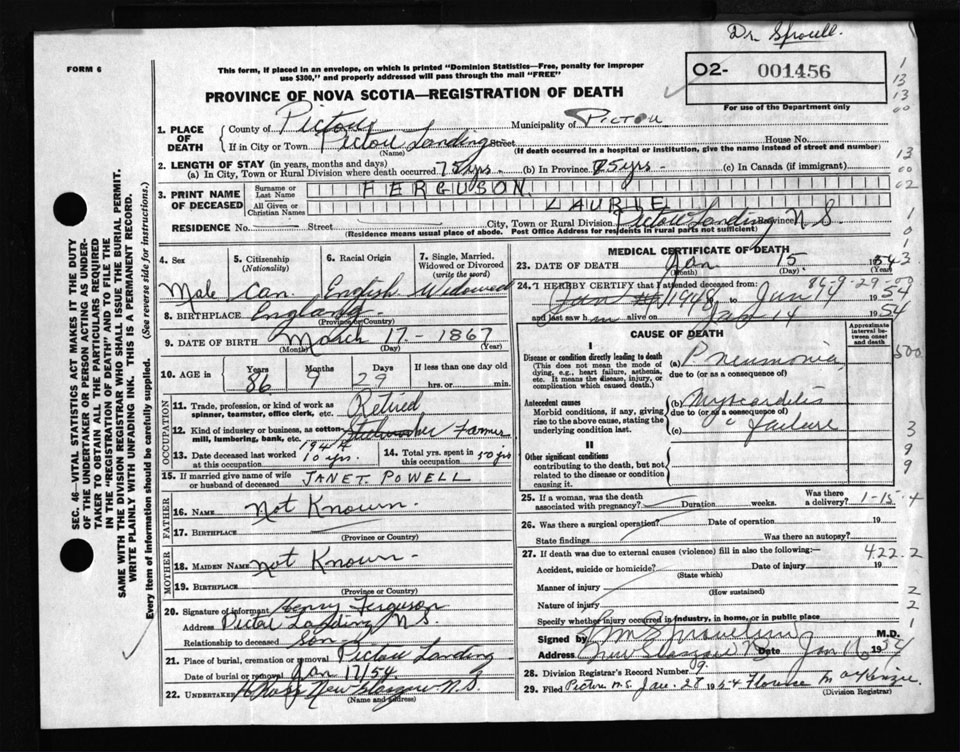 Dr. Sproull.
FORM 6
This form, if placed in an envelope, on which is printed "Dominion Statistics—Free, penalty for improper
use $300," and properly addressed will pass through the mail "FREE"
O2- 001456
For use of the Department only
PROVINCE OF NOVA SCOTIA—REGISTRATION OF DEATH
1. PLACE OF DEATH
County of Pictou Municipality of PICTOU
If in City or Town Pictou Landing Street House No.
(Name) (If death occurred in a hospital or institution, give the name instead of street and number)
2. LENGTH OF STAY (in years, months and days)
(a) In City, Town or Rural Division where death occurred 75 yrs. (b) In Province 75 yrs (c) In Canada (if immigrant)
3. PRINT NAME OF DECEASED
Surname or Last Name FERGUSON
All Given or Christian Names LAURIE
RESIDENCE No. Street City, Town or Rural Division Pictou Landing Province N.S.
(Residence means usual place of abode. Post Office Address for residents in rural parts not sufficient)
4. Sex
Male
5. Citizenship
(Nationality)
Can.
6. Racial Origin
English
7. Single, Married,
Widowed or Divorced
(write the word)
Widowed
8. BIRTHPLACE England
(Province or Country)
9. DATE OF BIRTH March 17 - 1867
(Month) (Day) (Year)
10. AGE in Years Months Days If less than one day
86 9 29 hrs. or min.
OCCUPATION
11. Trade, profession, or kind of work as
spinner, teamster, office clerk, etc. Retired
12. Kind of industry or business, as cotton
mill, lumbering, bank, etc. Farmer
13. Date deceased last worked
at this occupation 1944 10 yrs.
14. Total yrs. spent in
this occupation 50 yrs
15. If married give name of wife
or husband of deceased JANET POWELL
FATHER
16. Name Not Known.
17. BIRTHPLACE
(Province or Country)
MOTHER
18. MAIDEN NAME Not Known -
19. BIRTHPLACE
(Province or Country)
20. Signature of informant Henry Ferguson
Address Pictou Landing N.S.
Relationship to deceased Son
21. Place of burial, cremation or removal Pictou Landing
Date of burial or removal Jan 17/54.
22. UNDERTAKER New Glasgow N.S.
(Name and address)
MEDICAL CERTIFICATE OF DEATH
23. DATE OF DEATH Jan 15 1954
(Month) (Day) (Year)
24. I HEREBY CERTIFY that I attended deceased from:
Jan 1948 to Jan 14 1954
and last saw h im alive on Jan 14 1954
CAUSE OF DEATH
Approximate
interval between
onset and
death
I
Disease or condition directly leading to death
(This does not mean the mode of
dying, e.g., heart failure, asthenia,
etc. It means the disease, injury, or
complication which caused death.)
(a) Pneumonia
due to (or as a consequence of)
Antecedent causes
Morbid conditions, if any, giving
rise to the above cause, stating the
underlying condition last.
(b) Myocarditis
due to (or as a consequence of)
(c) c failure
II
Other significant conditions
contributing to the death, but not
related to the disease or condition
causing it.
25. If a woman, was the death
associated with pregnancy? Duration weeks. Was there
a delivery?
26. Was there a surgical operation? Date of operation 19
State findings Was there an autopsy?
27. If death was due to external causes (violence) fill in also the following:—
Accident, suicide or homicide? Date of injury 19
(State which)
Manner of injury
(How sustained)
Nature of injury
Specify whether injury occurred in industry, in home, or in public place
Signed by M.D.
Address New Glasgow N.S. Date Jan 16 1954
28. Division Registrar's Record Number 9.
29. Filed Pictou N.S. Jan. 28 1954 Florence M. MacKenzie.
(Division Registrar)
SEC. 46—VITAL STATISTICS ACT MAKES IT THE DUTY
OF THE UNDERTAKER OR PERSON ACTING AS UNDER-
TAKER TO OBTAIN ALL THE PARTICULARS REQUIRED
IN THE "REGISTRATION OF DEATH" AND TO FILE THE
SAME WITH THE DIVISION REGISTRAR WHO SHALL ISSUE THE BURIAL PERMIT.
WRITE PLAINLY WITH UNFADING INK. THIS IS A PERMANENT RECORD.
Every item of information should be carefully supplied. (See reverse side for instructions.)
1
13
13
00
13
00
02
1
0
1
3
86 9-29-00
500
3
9
9
1-15-4
422.2
2
2
1